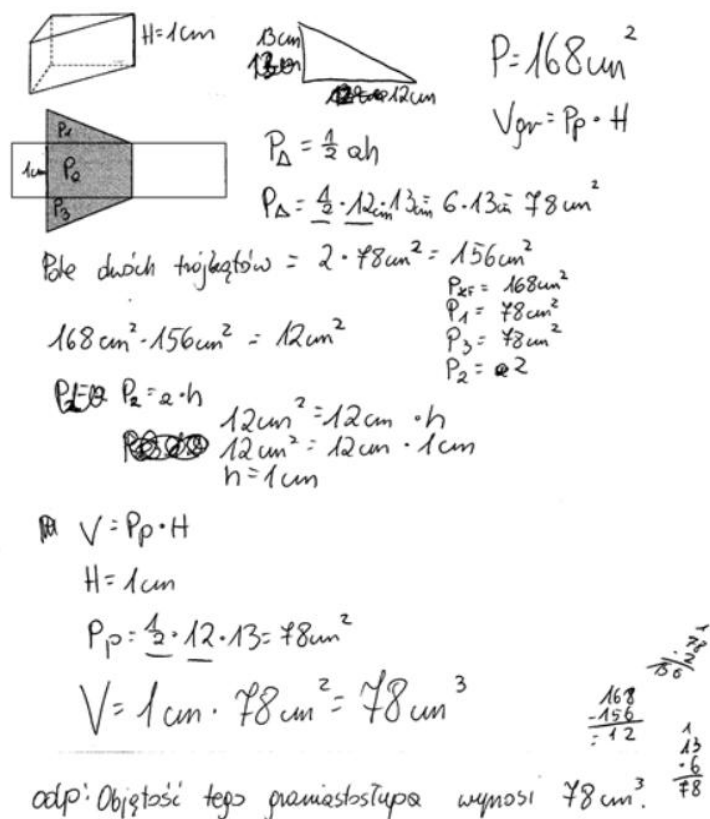 H=1cm
13cm
12cm
P=168cm²
Vgr=Pp·H
P1
1cm P2
P3
P△=½ah
P△=½·12cm·13cm=6·13= 78cm²
Pole dwóch trójkątów = 2·78cm²= 156cm²
PKF= 168cm²
P1= 78cm²
P3= 78cm²
P2= 2
168cm²-156cm² = 12cm²
P2=a·h
12cm²=12cm ·h
12cm²=12cm · 1cm
h=1cm
V=Pp·H
H=1cm
Pp=½·12·13=78cm²
V=1cm·78cm²=78cm³
1
78
·2
156
168
-156
=12
1
13
·6
78
odp: Objętość tego graniastosłupa wynosi 78cm³.